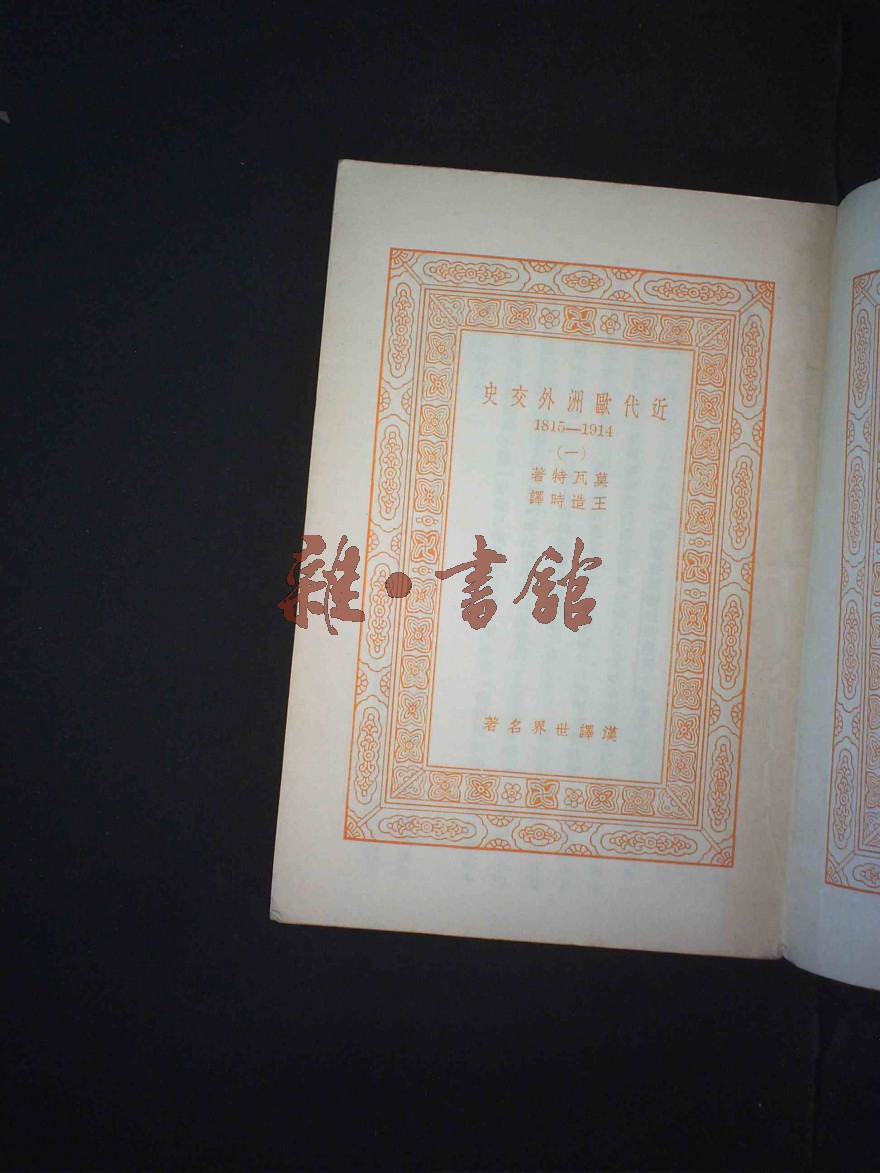 近代歐洲外交史
1815—1914
(一)
莫瓦特著
王造時譯
雜·書館
漢譯世界名著